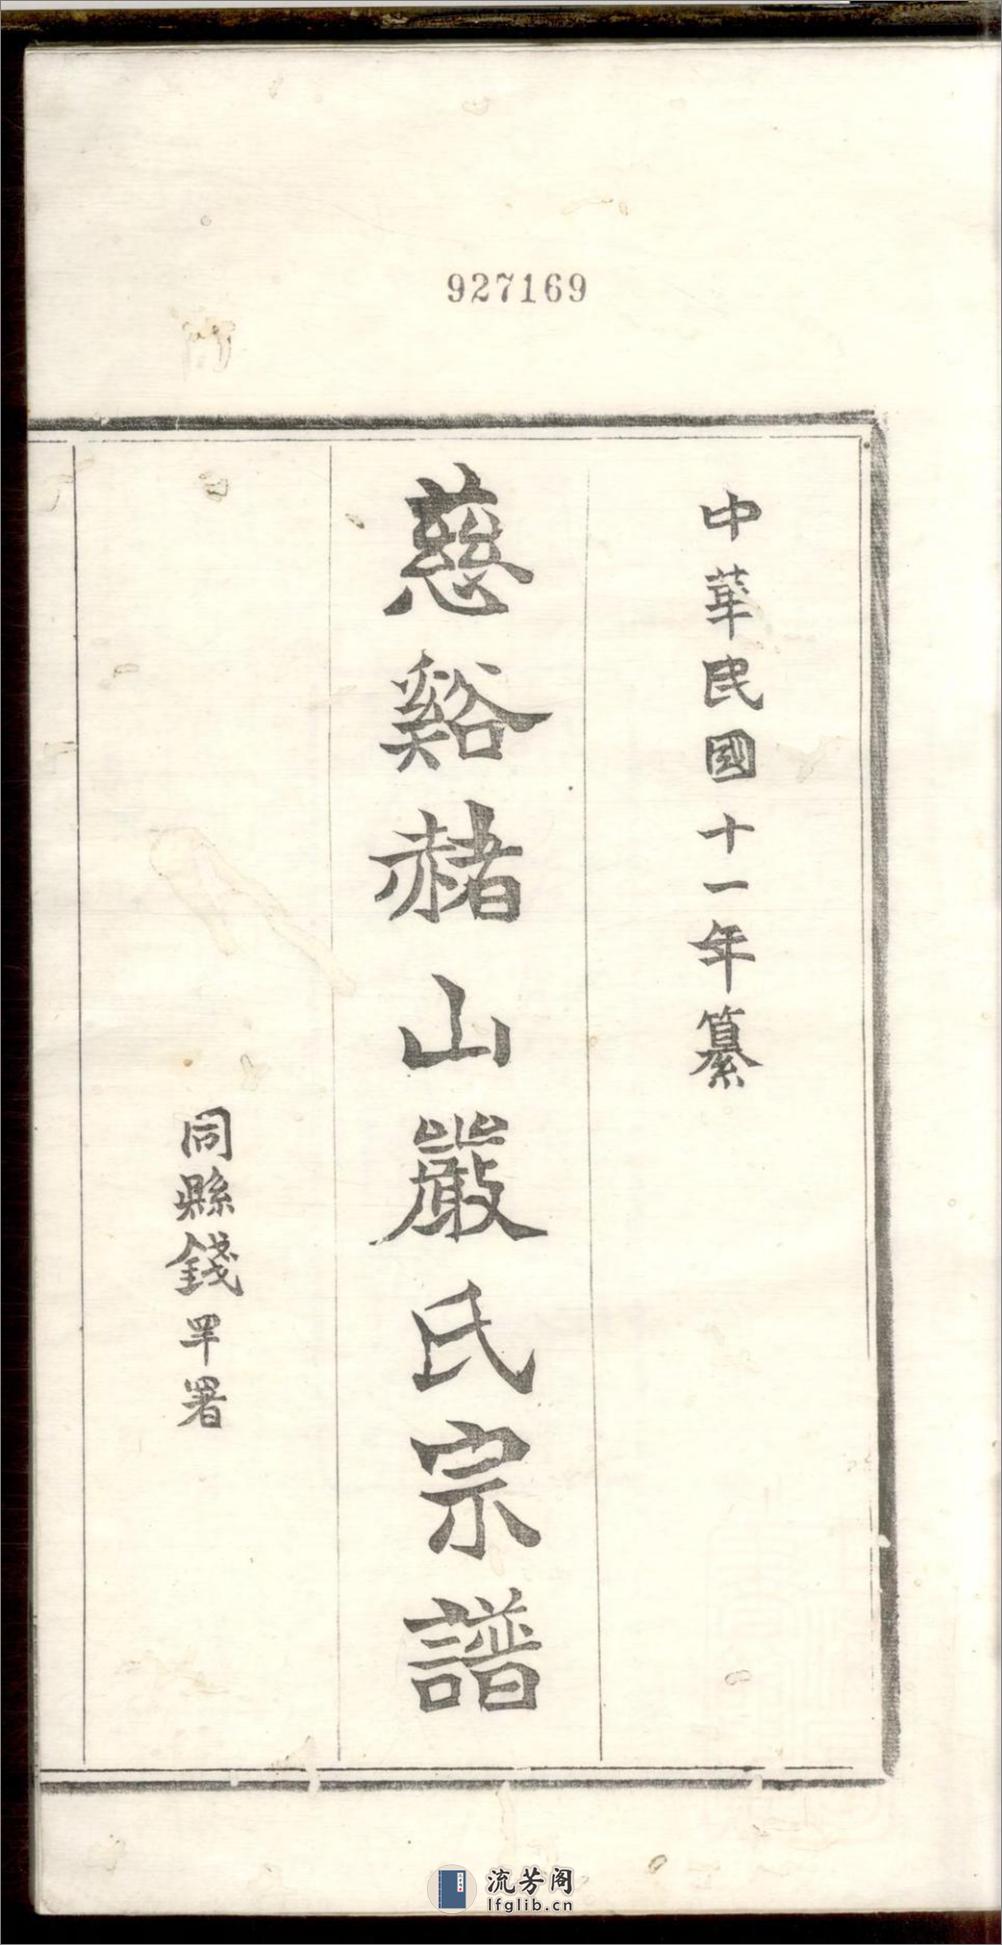 927169
中華民國十一年纂
慈谿赭山嚴氏宗譜
同縣錢罕署
流芳阁
lfglib.cn